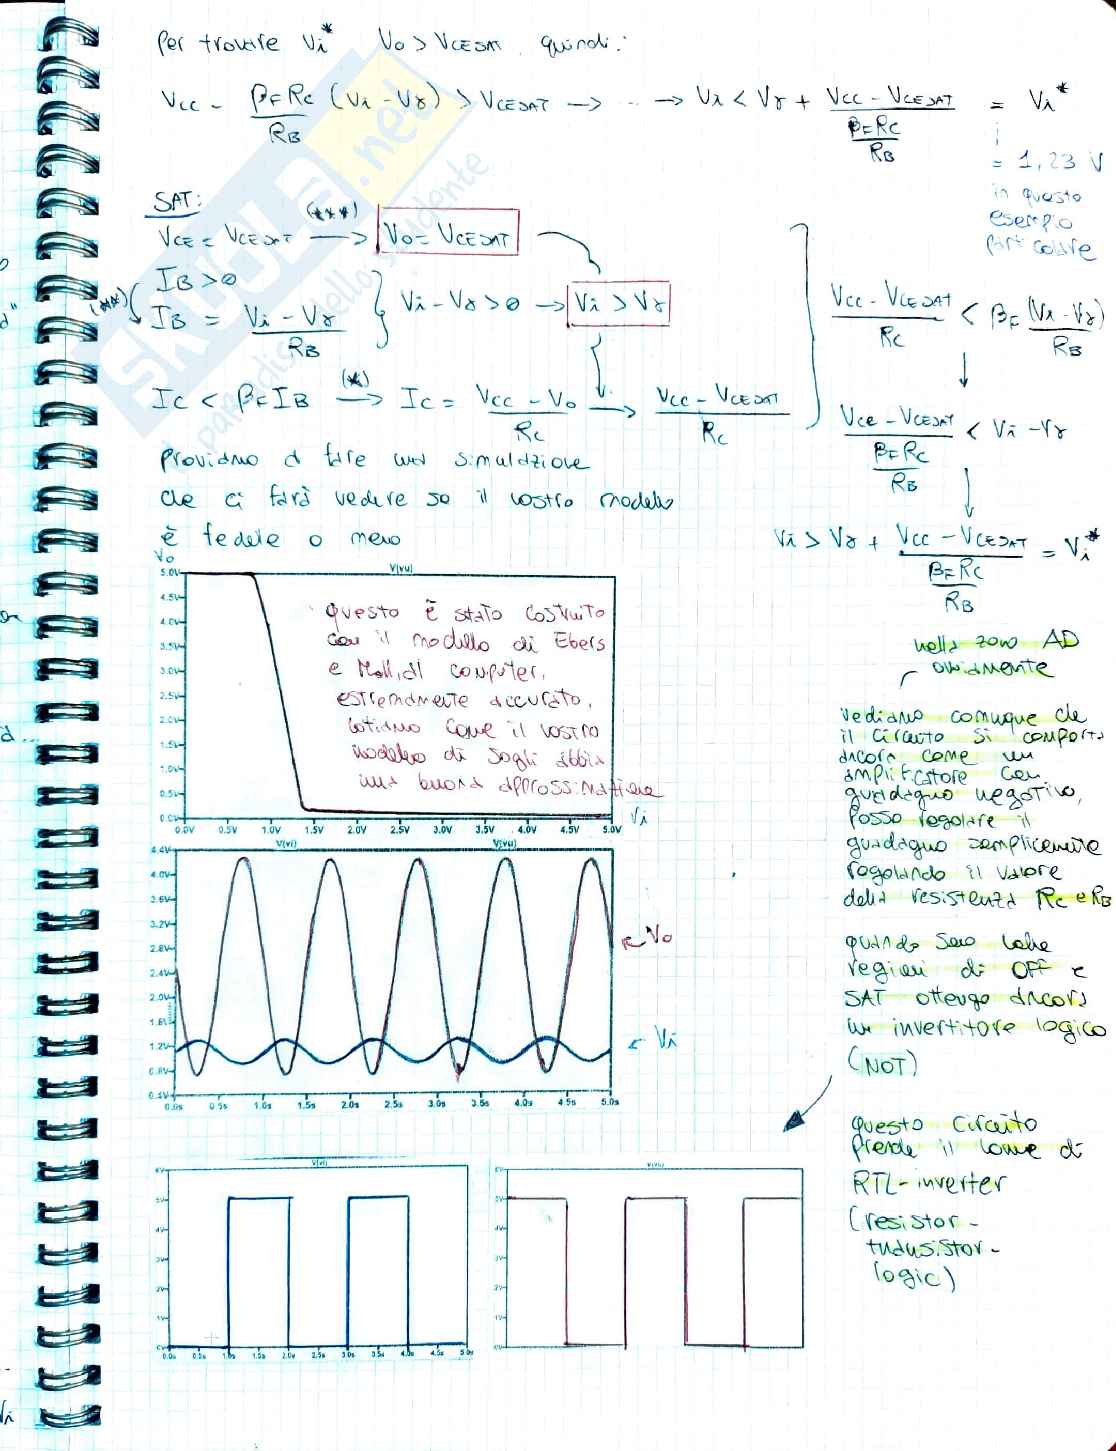 Per trovare Vi* Vo > VCESAT quindi:
VCC - βFRC/RB (Vi - Vγ) > VCESAT → ... → Vi < Vγ + (VCC - VCESAT)/(βFRC/RB) = Vi*
= 1,23 V
in questo
esempio
particolare
SAT:
VCE = VCESAT (***) → Vo = VCESAT
IB > 0
(**) IB = (Vi - Vγ)/RB } Vi - Vγ > 0 → Vi > Vγ
IC < βFIB (*) → IC = (VCC - Vo)/RC → (VCC - VCESAT)/RC
(VCC - VCESAT)/RC < βF (Vi - Vγ)/RB
↓
(VCC - VCESAT)/(βFRC/RB) < Vi - Vγ
↓
Vi > Vγ + (VCC - VCESAT)/(βFRC/RB) = Vi*
Proviamo a fare una simulazione
che ci farà vedere se il nostro modello
è fedele o meno
Vo
V(vu)
5.0V
4.5V
4.0V
3.5V
3.0V
2.5V
2.0V
1.5V
1.0V
0.5V
0.0V
0.0V 0.5V 1.0V 1.5V 2.0V 2.5V 3.0V 3.5V 4.0V 4.5V 5.0V
Vi
questo è stato costruito
con il modello di Ebers
e Moll, al computer,
estremamente accurato,
notiamo come il nostro
modello di soglia abbia
una buona approssimazione
nella zona AD
ovviamente
vediamo comunque che
il circuito si comporta
ancora come un
amplificatore con
guadagno negativo,
posso regolare il
guadagno semplicemente
regolando il valore
della resistenza RC e RB
V(vi) V(vu)
4.4V
4.0V
3.6V
3.2V
2.8V
2.4V
2.0V
1.6V
1.2V
0.8V
0.4V
0.0s 0.5s 1.0s 1.5s 2.0s 2.5s 3.0s 3.5s 4.0s 4.5s 5.0s
← Vo
← Vi
quando sono nelle
regioni di OFF e
SAT ottengo ancora
un invertitore logico
(NOT)
questo circuito
prende il nome di
RTL-inverter
(resistor-
transistor-
logic)
V(vi)
6V
5V
4V
3V
2V
1V
0V
0.0s 0.5s 1.0s 1.5s 2.0s 2.5s 3.0s 3.5s 4.0s 4.5s 5.0s
V(vu)
6V
5V
4V
3V
2V
1V
0V
Vi
skuola.net